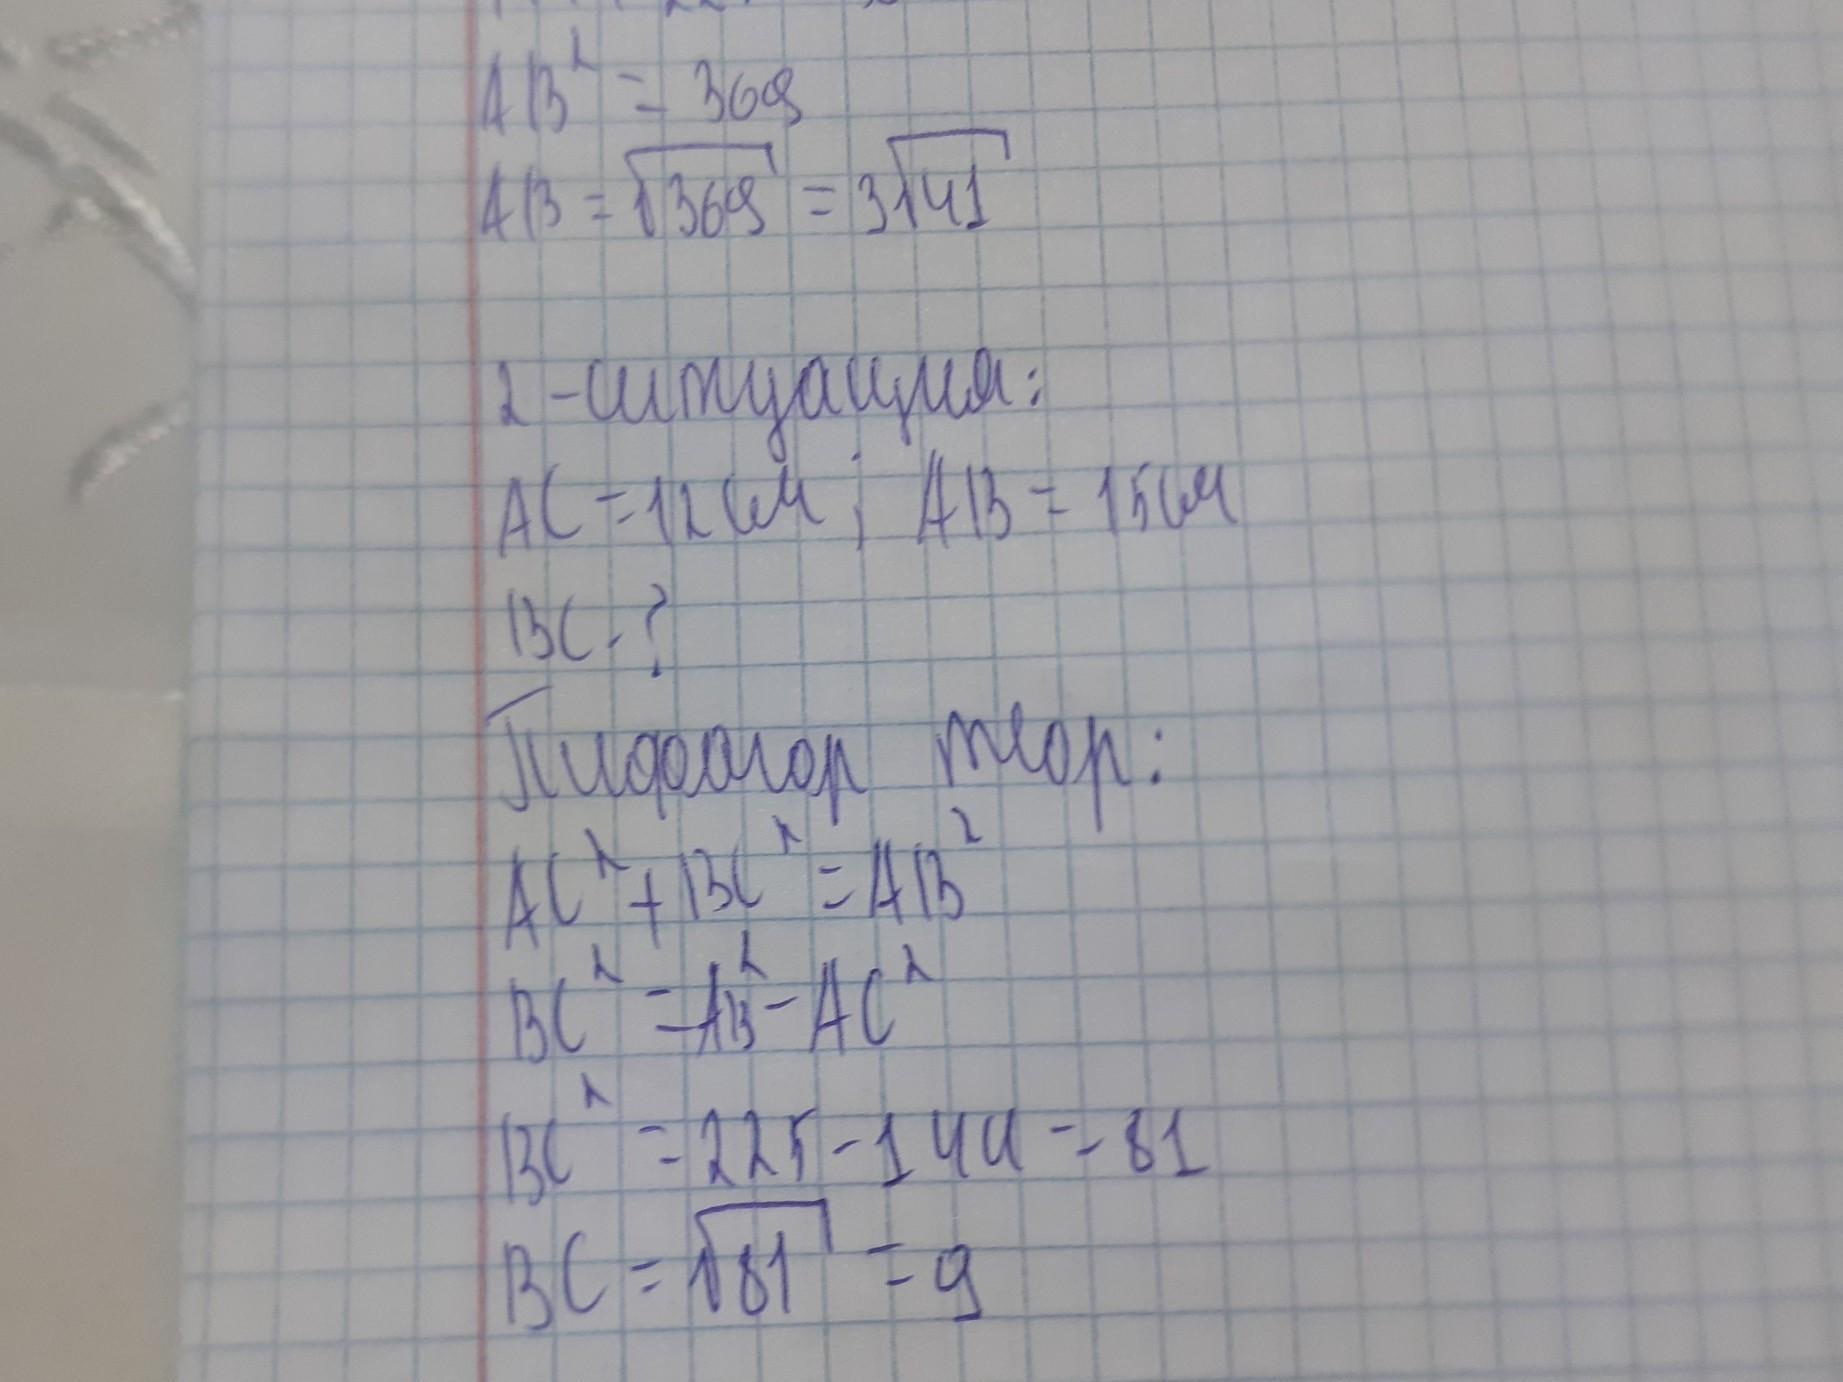 AB² = 369
AB = √369 = 3√41
2-ситуация:
AC = 12 см ; AB = 15 см
BC - ?
Пифагор теор:
AC² + BC² = AB²
BC² = AB² - AC²
BC² = 225 - 144 = 81
BC = √81 = 9